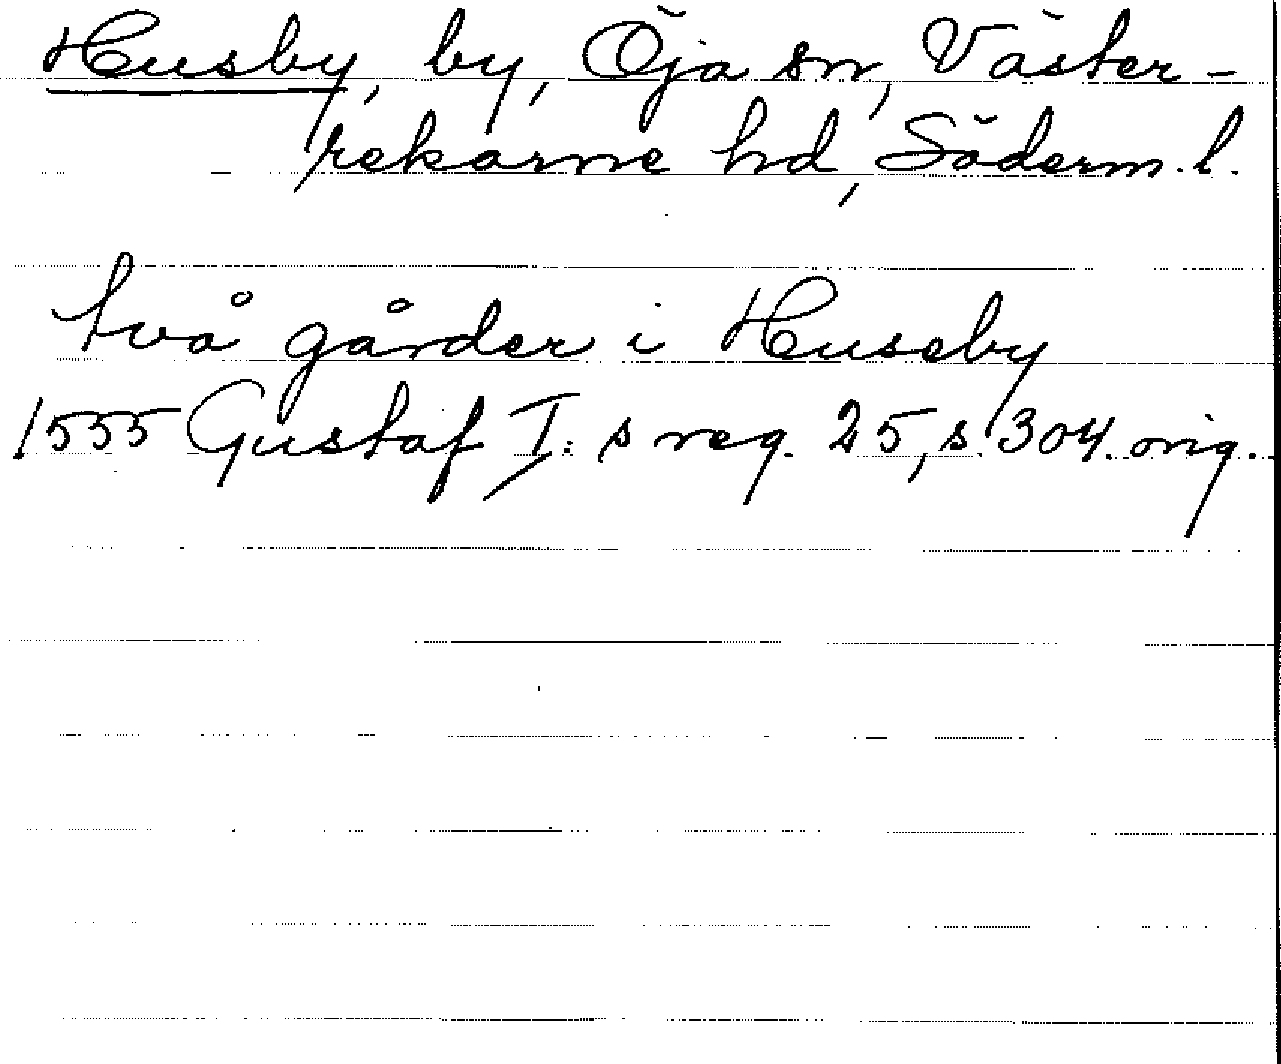 Husby, by, Öja sn, Väster-
rekarne hd, Söderm. l.
två gårder i Huseby
1555 Gustaf I:s reg. 25, s. 304. orig.